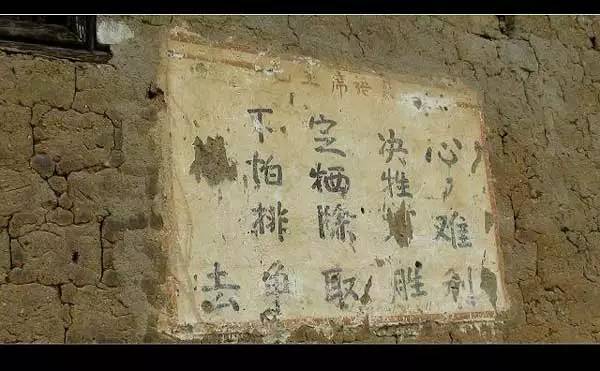 主席语
下定决心,
怕牺牲,
排除难
去争取胜利